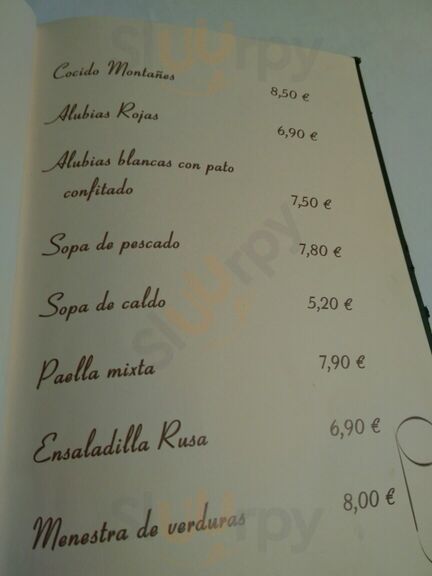 sluurpy
Cocido Montañes 8,50 €
Alubias Rojas 6,90 €
Alubias blancas con pato
confitado 7,50 €
Sopa de pescado 7,80 €
Sopa de caldo 5,20 €
sluurpy
Paella mixta 7,90 €
Ensaladilla Rusa 6,90 €
Menestra de verduras 8,00 €
sluurpy